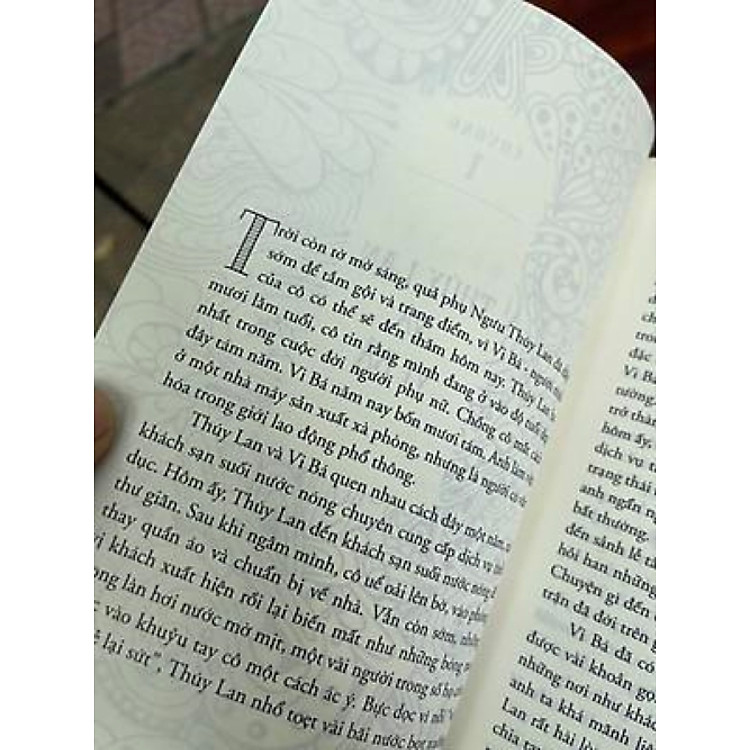 CHƯƠNG
1
THÚY LAN
Trời còn tờ mờ sáng, quả phụ Ngưu Thúy Lan đã
sớm để tắm gội và trang điểm, vì Vi Bá - người
của cô có thể sẽ đến thăm hôm nay. Thúy Lan
mươi lăm tuổi, cô tin rằng mình đang ở vào độ tuổi
nhất trong cuộc đời người phụ nữ. Chồng cô mất cách
đây tám năm. Vi Bá năm nay bốn mươi tám. Anh làm
ở một nhà máy sản xuất xà phòng, nhưng là người có
hóa trong giới lao động phổ thông.
Thúy Lan và Vi Bá quen nhau cách đây một năm,
khách sạn suối nước nóng chuyên cung cấp dịch vụ
dục. Hôm ấy, Thúy Lan đến khách sạn suối nước nóng
thư giãn. Sau khi ngâm mình, cô uể oải lên bờ, vào
thay quần áo và chuẩn bị về nhà. Vẫn còn sớm,
vị khách xuất hiện rồi lại biến mất như những bóng
làn hơi nước mờ mịt, một vài người trong số họ
vào khuỷu tay cô một cách ác ý. Bực dọc vì nỗi
lại sứt", Thúy Lan nhổ toẹt vài bãi nước bọt
đặc
Vi Bá
nường.
trở thàn
hôm ấy,
dịch vụ t
trạng thái
anh ngẩn ng
bất thường.
đến sảnh lễ t
hỏi han những
Chuyện gì đến
trận đã đời trên g
Vi Bá đã có
được vài khoản go
những nơi như khác
anh ta khá mãnh li
Lan rất hài l
chia ta